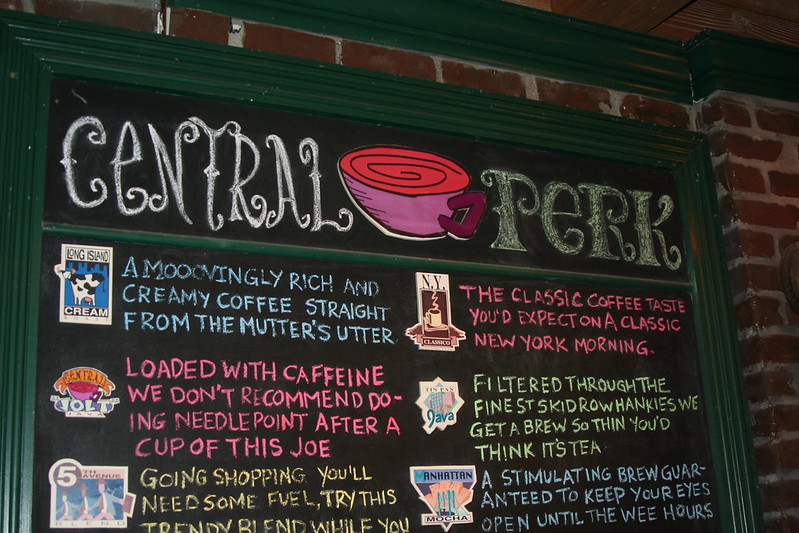 CENTRAL PERK
LONG ISLAND
CREAM
A MOOOVINGLY RICH AND
CREAMY COFFEE STRAIGHT
FROM THE MUTTER'S UTTER
N.Y.
CLASSICO
THE CLASSIC COFFEE TASTE
YOU'D EXPECT ON A CLASSIC
NEW YORK MORNING.
CENTRAL
JOLT
JAVA
LOADED WITH CAFFEINE
WE DON'T RECOMMEND DO-
ING NEEDLEPOINT AFTER A
CUP OF THIS JOE
TIN PAN
Java
FILTERED THROUGH THE
FINEST SKID ROW HANKIES WE
GET A BREW SO THIN YOU'D
THINK IT'S TEA
5TH AVENUE
BLEND
GOING SHOPPING YOU'LL
NEED SOME FUEL, TRY THIS
TRENDY BLEND WHILE YOU
MANHATTAN
MOCHA
A STIMULATING BREW GUAR-
ANTEED TO KEEP YOUR EYES
OPEN UNTIL THE WEE HOURS